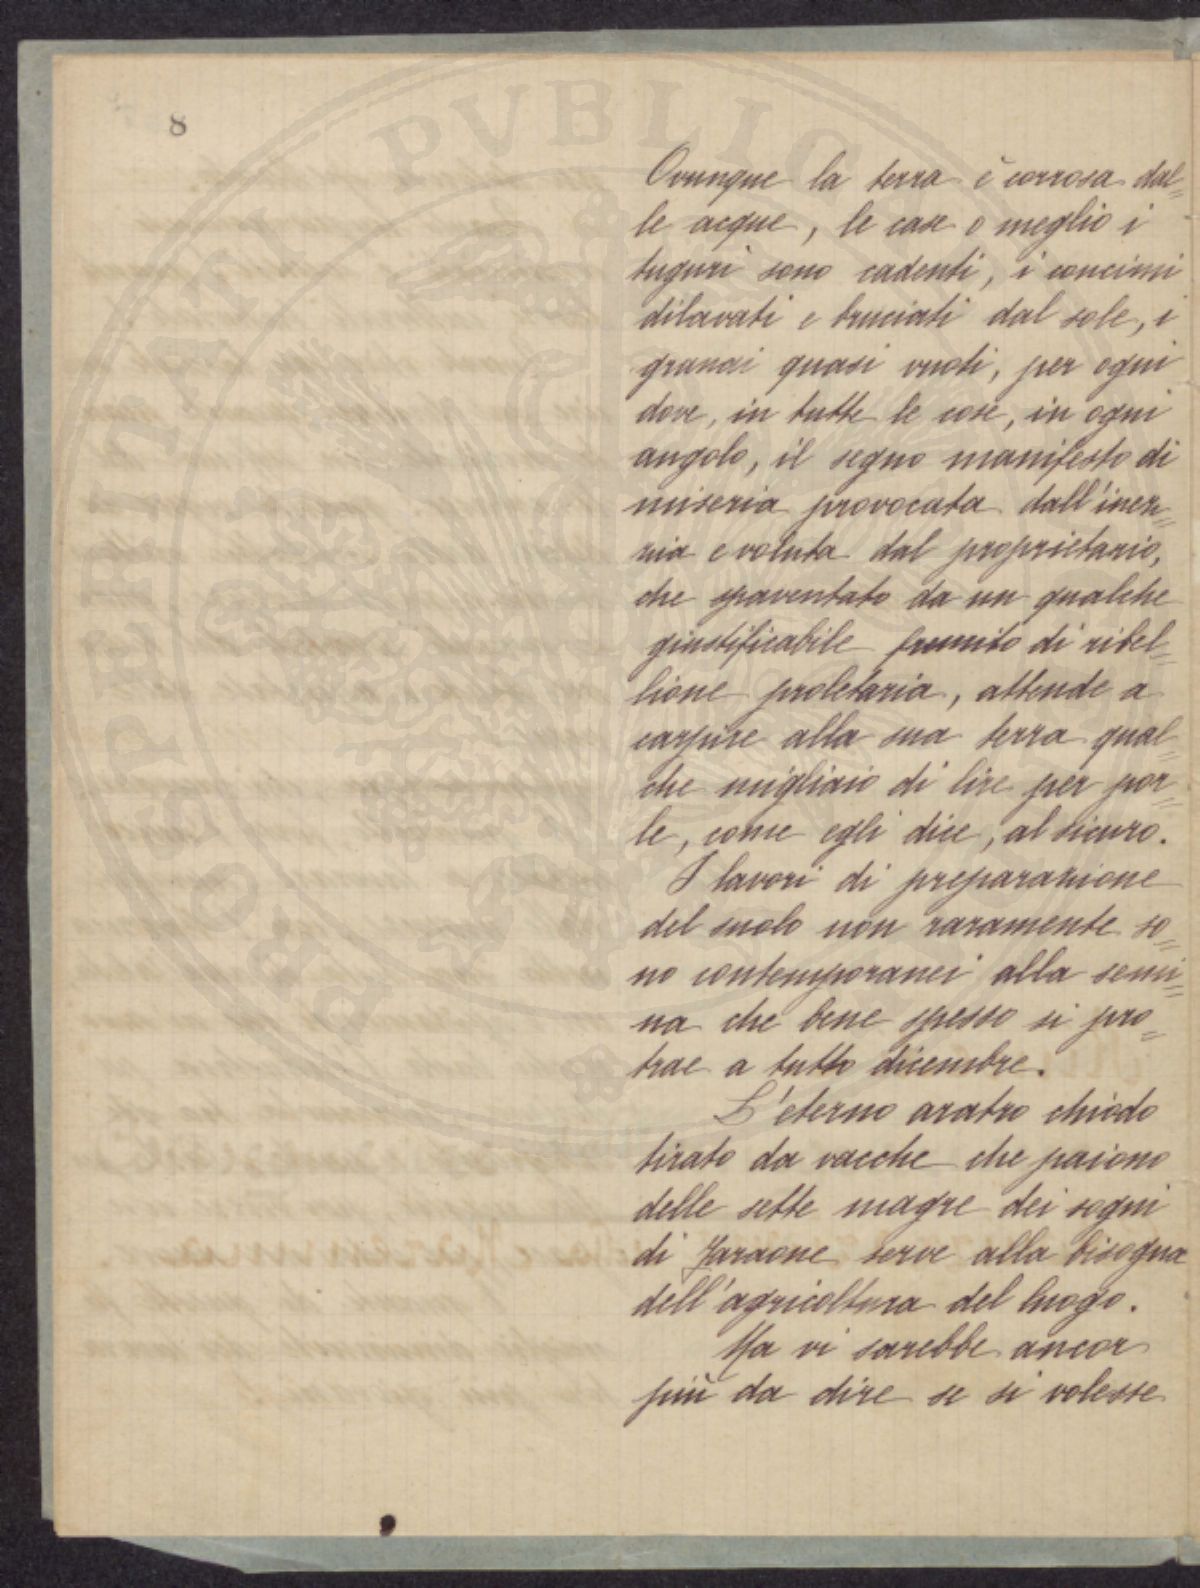 8
Ovunque la terra è corrosa dal=
le acque, le case o meglio i
tuguri sono cadenti, i concimi
dilavati e bruciati dal sole, i
granai quasi vuoti, per ogni
dove, in tutte le cose, in ogni
angolo, il segno manifesto di
miseria provocata dall'iner=
zia e voluta dal proprietario,
che spaventato da un qualche
giustificabile fremito di ribel=
lione proletaria, attende a
carpire alla sua terra qual=
che migliaio di lire per por=
le, come egli dice, al sicuro.
I lavori di preparazione
del suolo non raramente so=
no contemporanei alla semi=
na che bene spesso si pro=
trae a tutto dicembre.
L'eterno aratro chiodo
tirato da vacche che paiono
delle sette magre dei sogni
di Faraone serve alla bisogna
dell'agricoltura del luogo.
Ma vi sarebbe ancor
più da dire se si volesse